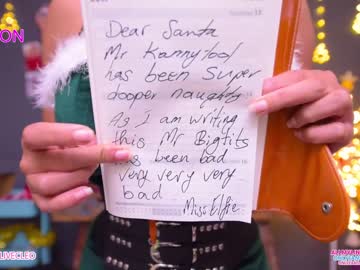 ON
Dear Santa
Mr Kannytool
has been super
dooper naughty
As I am writing
this Mr Bigtits
has been bad
very very very
bad
Miss Elfie
LIVECLEO